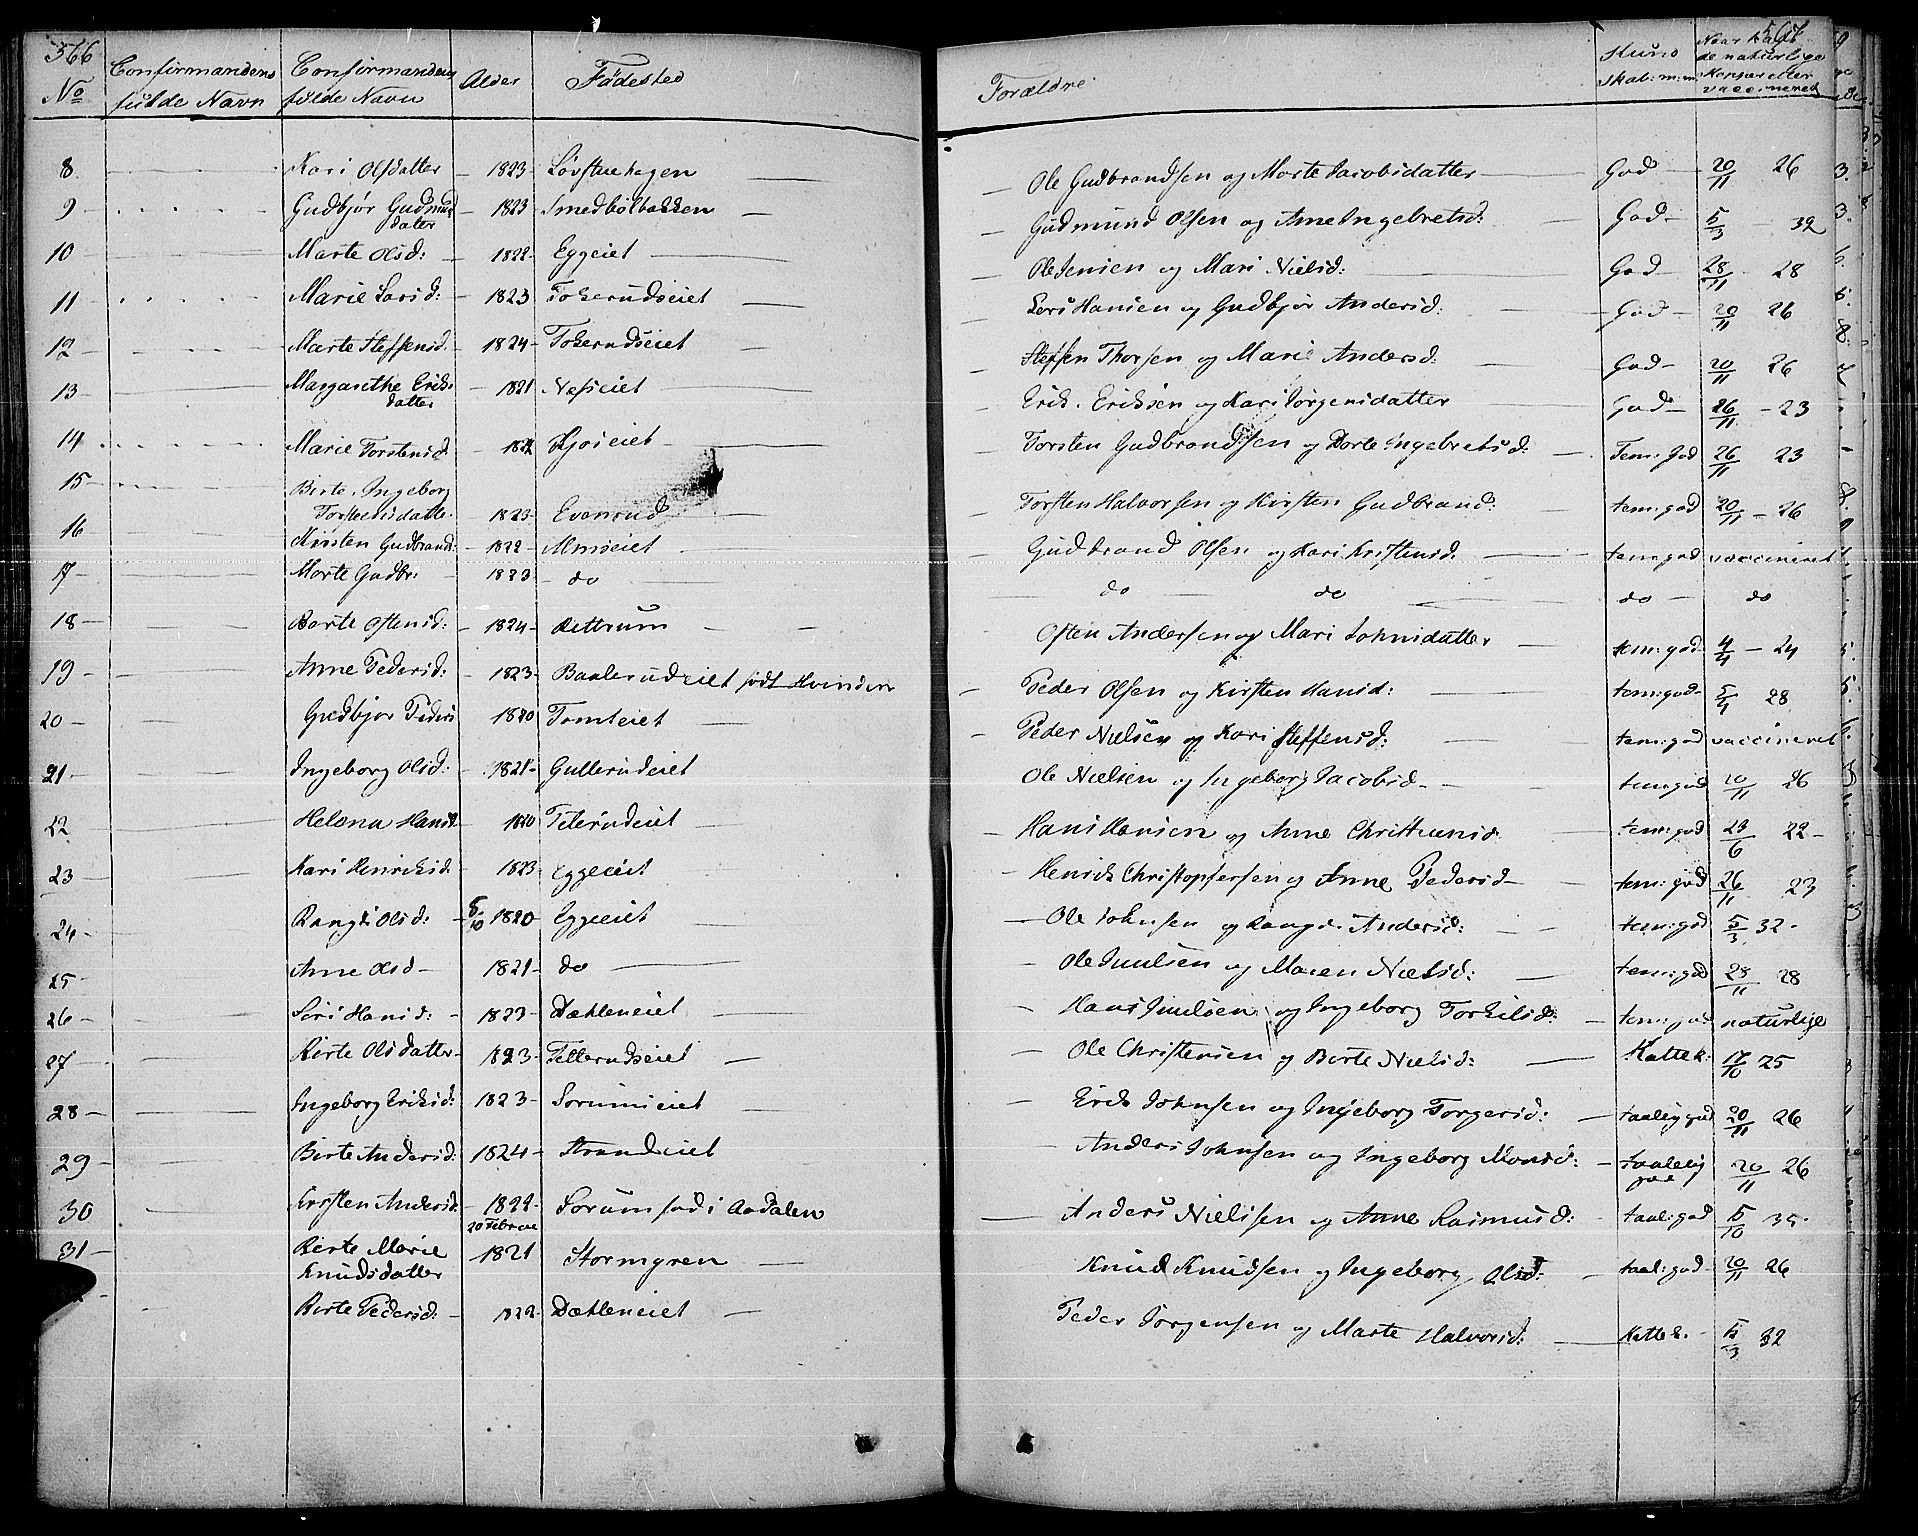 566
567
No
Confirmandens fulde Navn
Confirmandens fulde Navn
Alder
Fødested
Forældre
Kundskab: m:m:
Naar havt de naturlige Kopper eller vaccineret
8 Kari Olsdatter 1823 Løvstuehagen Ole Gudbrandsen og Marte Jacobsdatter God 20/11 26
9 Gudbjør Gudmunddater 1823 Smedbølbakken Gudmund Olsen og Anne Ingebretsd: God 5/3 32
10 Marte Olsd: 1822 Eggeiet Ole Jensen og Mari Nielsd: God 28/11 28
11 Marie Larsd: 1823 Tokerudseiet Lars Hansen og Gudbjør Andersd: God 20/11 26
12 Marte Steffensd. 1824 Tokerudseiet Steffen Thorsen og Marie Andersd: God 20/11 26
13 Margarethe Eriksdatter 1821 Næsseiet Erik Eriksen og Kari Jørgensdatter God 26/11 23
14 Marie Torstensd 1822 Kjøseiet Torsten Gudbrandsen og Dorte Ingebretsd: Tem: God 26/11 23
15 Birte Ingeborg Torstensdatte. 1823 Evenrud Torsten Halvorsen og Kirsten Gudbrand: tem: god 20/11 26
16 Kirsten Gudbrand: 1822 Almseiet Gudbrand Olsen og Kari Kristensd: tem: god vaccineret
17 Marte Gudbr: 1823 do do do do do
18 Barte Ostensd: 1824 Rettrum Osten Andersen og Mari Johnsdatter tem: god 4/4 24
19 Anne Pedersd: 1823 Baalerudeiet født Hvinden Peder Olsen og Kirsten Hansd: tem: god 5/4 28
20 Gudbjør Peders 1820 Tomteiet Peder Nielsen og Kari Steffensd: tem: god vaccineret
21 Ingeborg Olsd: 1821 Gullerudeiet Ole Nielsen og Ingeborg Jacobsd tem: god 20/11 26
22 Helena Hansd 1820 Teterudeiet Hans Hansen og Anne Christiansd tem: god 23/6 22
23 Kari Henriksd 1823 Eggeeiet Henrik Christophersen og Anne Pedersd tem: god 26/11 23
24 Rangdi Olsd: 5/10 1820 Eggeeiet Ole Johnsen og Rangdi Andersd: tem: god 5/3 32
25 Anne Olsd 1821 do Ole Juulsen og Maren Nielsd: tem: god 28/11 28
26 Siri Hansd: 1823 Dæhleneiet Hans Juulsen og Ingeborg Torkilsd: tem: god naturlige
27 Birte Olsdatter 1823 Tellerudseiet Ole Christensen og Berte Nielsd: Kattek: 17/10 25
28 Ingeborg Eriksd: 1823 Sørumseiet Erik Johnsen og Ingeborg Torgersd: taalig god 20/11 26
29 Birte Andersd: 1824 Strandeiet Anders Johnsen og Ingeborg Monsd: taalelig god 20/11 26
30 Kirsten Andersd. 1822 Sørum fød i Aadalen Anders Nielsen og Anne Rasmusd: taal: god 5/10 35
31 Birte Marie Knudsdatter 20 Februe 1821 Stormgren Knud Knudsen og Ingeborg Olsd: taal: god 20/11 26
Birte Pedersd: 1822 Dæhleneiet Peder Jørgensen og Marte Halvorsd: Kattek. 5/3 32